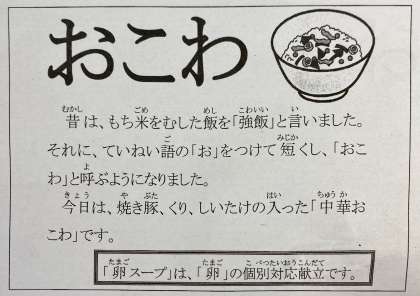 おこわ
昔は、もち米をむした飯を「強飯」と言いました。
それに、ていねい語の「お」をつけて短くし、「おこ
わ」と呼ぶようになりました。
今日は、焼き豚、くり、しいたけの入った「中華お
こわ」です。
「卵スープ」は、「卵」の個別対応献立です。